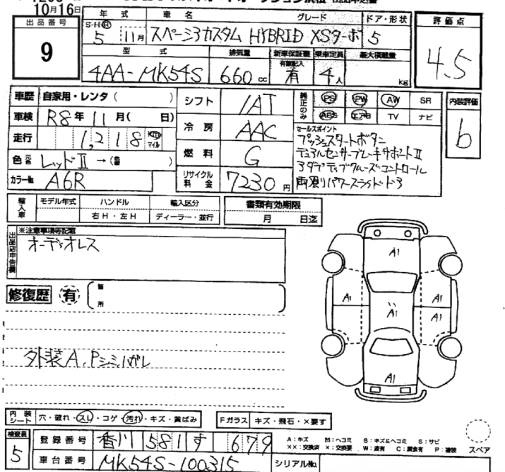 10月16日
出品番号
9
年 式 車 名 グレード ドア・形状
S・H・R 5 11月 スペーシアカスタム HYBRID XSターボ 5
型 式 排気量 新車保証書 乗車定員 最大積載量
4AA-MK54S 660cc 有 4人 kg
評価点
4.5
車歴 自家用・レンタ( )
車検 R8年11月( 日)
走行 1,218 Km マイル
色 レッドII →( )
カラーNo. A6R
シフト IAT
冷房 AAC
燃料 G
リサイクル料金 7230円
純正のみ PS PW AW SR
ABS TV ナビ
セールスポイント
プッシュスタートボタン
デュアルセンサーブレーキサポートII
アダプティブクルーズコントロール
両側パワースライドドア
内装評価
b
輸入車 モデル年式 ハンドル 輸入区分
右H・左H ディーラー・並行
書類有効期限
月 日迄
※注意事項等記載
オーディオレス
修復歴 有 箇所
外装A,Pシミハガレ
A1
A1 A1 A1 A1
A1
A1
内装シート 穴・破れ・スレ・コゲ・汚れ・キズ・黄ばみ
Fガラス キズ・飛石・×要す
検査員
5
登録番号 香川 581 す 679
車台番号 MK54S-100315
A:キズ M:ヘコミ B:キズとヘコミ S:サビ
XX:交換済 X:交換要 W:波有 C:腐食有 P:塗装
シリアルNo.
スペア